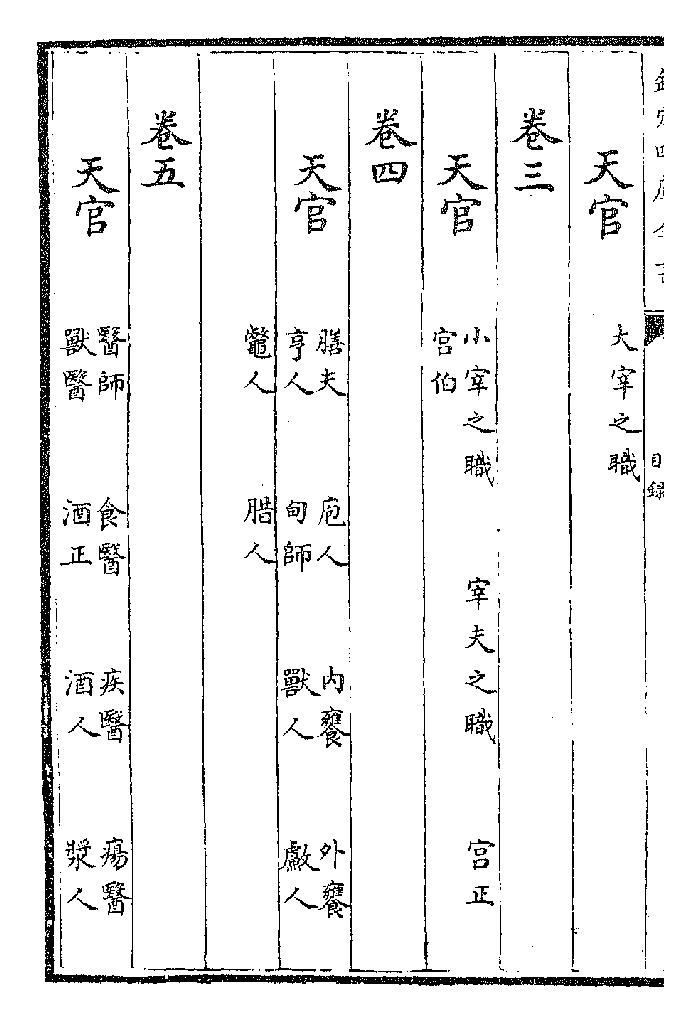 欽定四庫全書
目錄
天官
大宰之職
卷三
天官
小宰之職 宰夫之職 宮正
宮伯
卷四
天官
膳夫 庖人 內饔 外饔
亨人 甸師 獸人 人
鼈人 腊人
卷五
天官
醫師 食醫 疾醫 瘍醫
獸醫 酒正 酒人 漿人